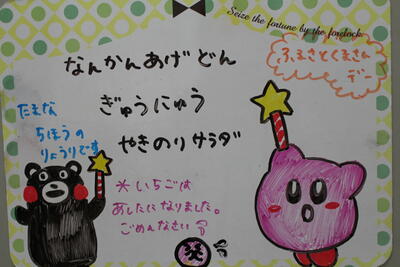 Seize the fortune by the forelock
なんかんあげどん
ぎゅうにゅう
やきのりサラダ
たまな
ちほうの
りょうりです
＊いちごは
あしたになりました。
ごめんなさい